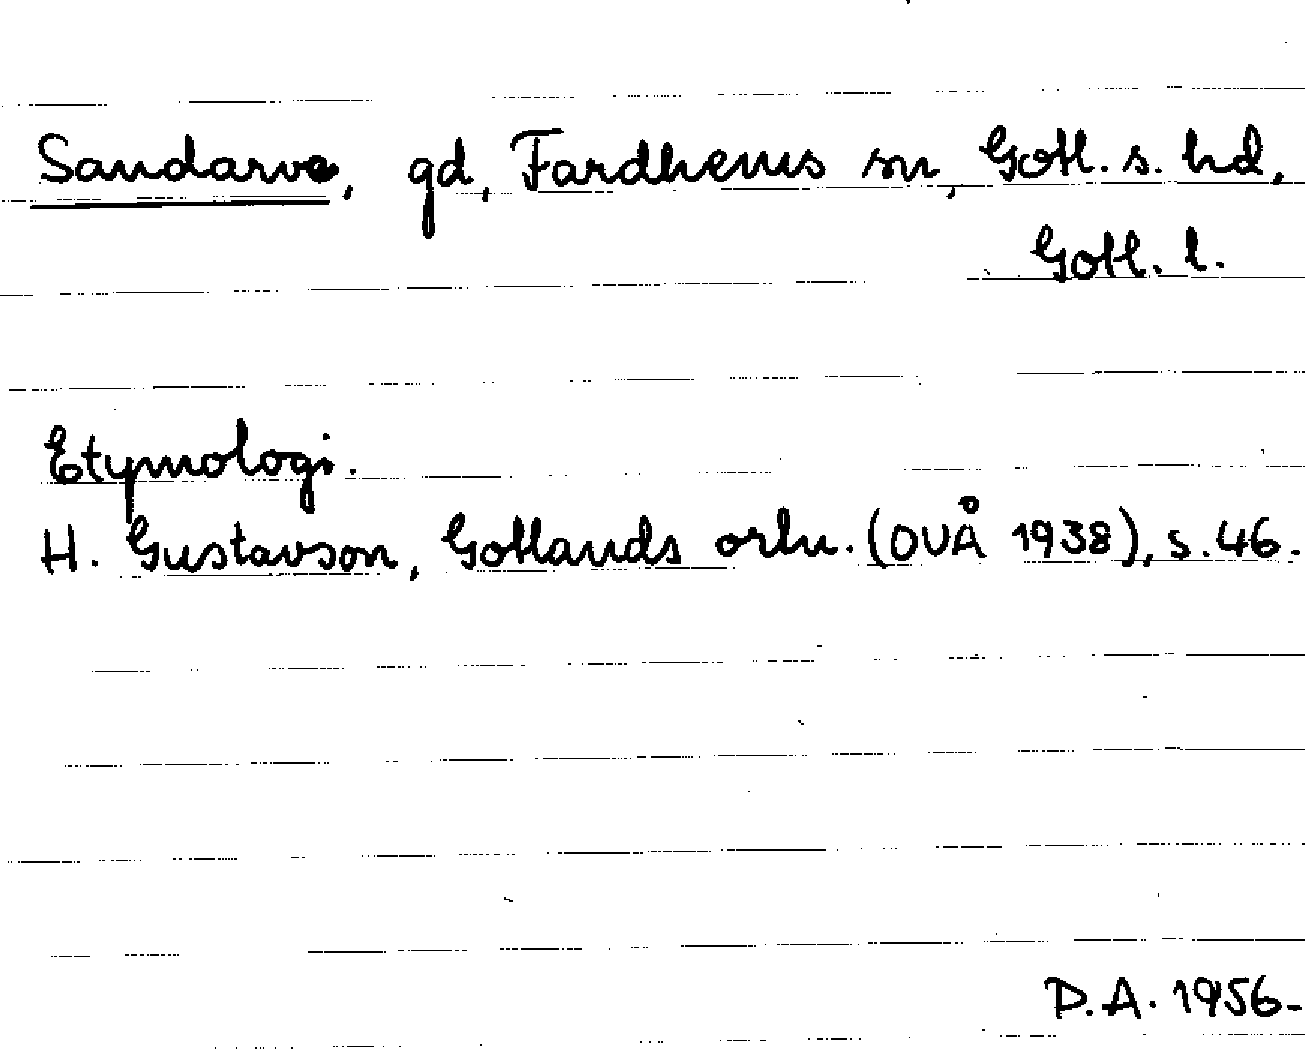 Sandarve, gd, Fardhems sn, Gotl. s. hd,
Gotl. l.
Etymologi.
H. Gustavson, Gotlands ortn. (OUÅ 1938), s. 46.
D.A. 1956.